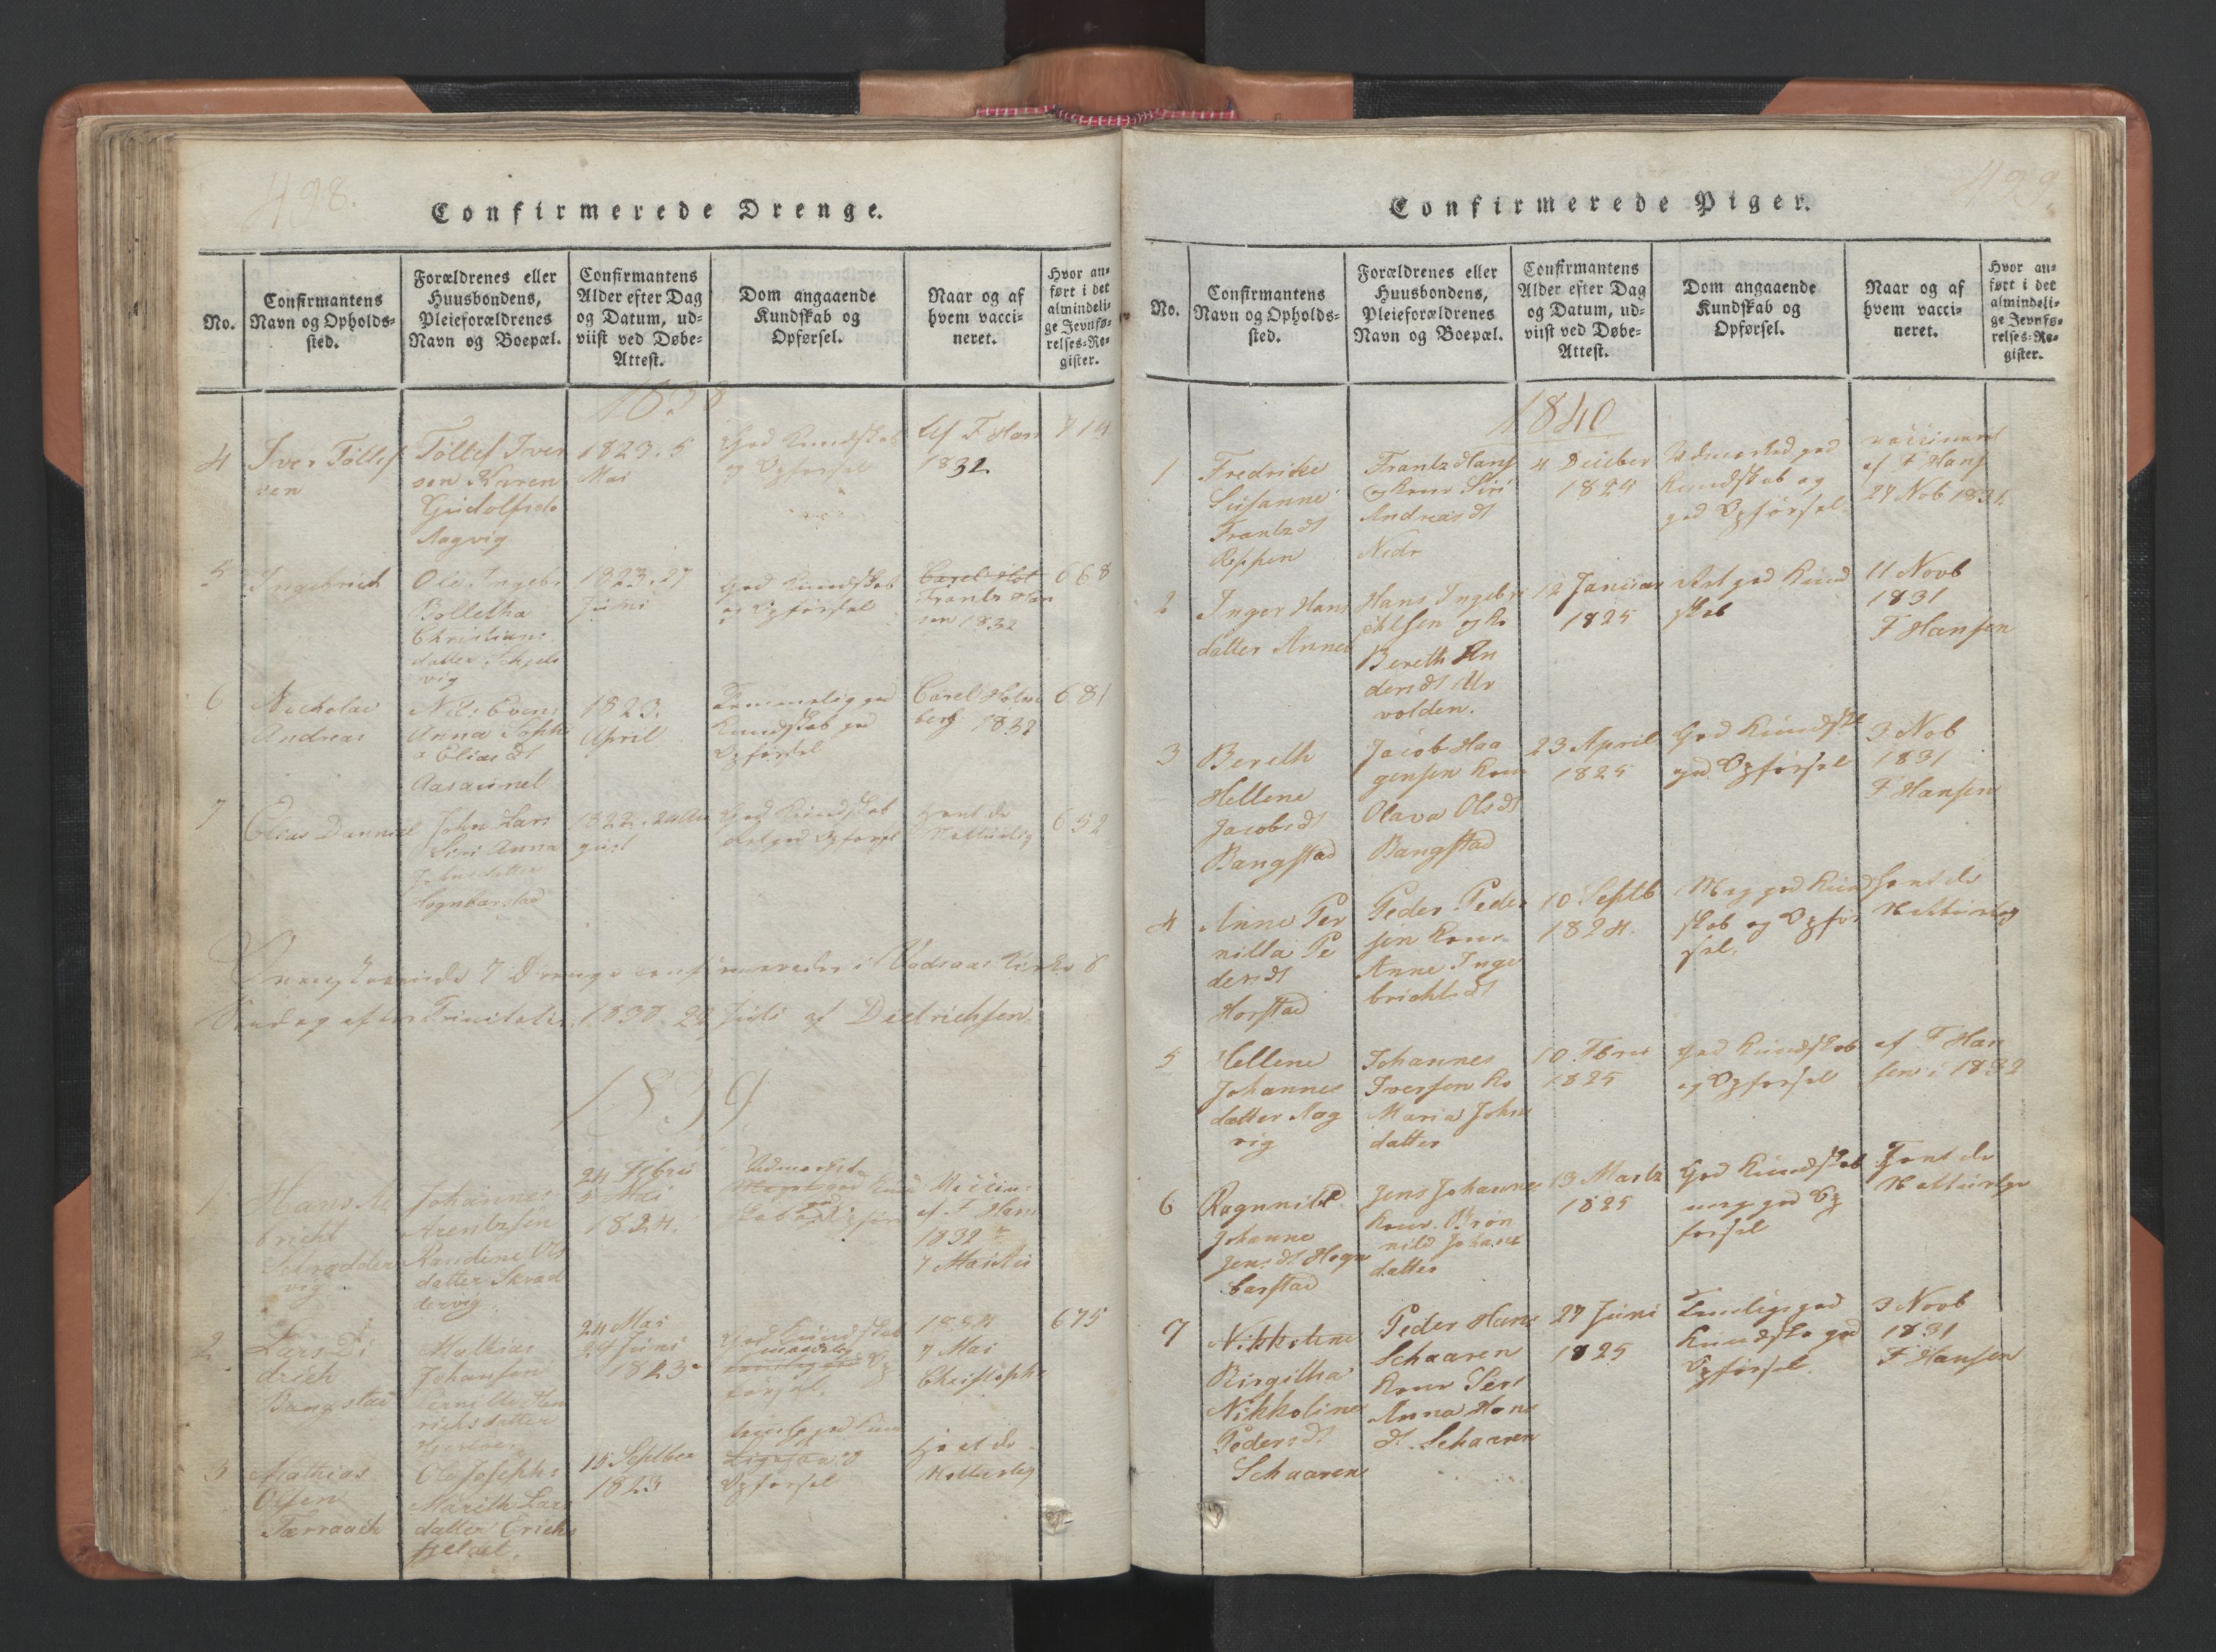 498.
Confirmerede Drenge.
No.
Confirmantens
Navn og Opholds=
sted.
Forældrenes eller
Huusbondens,
Pleieforældrenes
Navn og Boepæl.
Confirmantens
Alder efter Dag
og Datum, ud=
viist ved Døbe=
Attest.
Dom angaaende
Kundskab og
Opførsel.
Naar og af
hvem vacci=
neret.
Hvor an=
ført i det
almindeli=
ge Jevnfø=
relses=Re=
gister.
1838
4
Iver Tollef
sen
Tollef Iver
sen Karen
Aagvig
1823. 5
Mai
God Kundskab
og Opførsel
Af F Han
1832
5
Ingebrict
Ole Ingebr
Bolletha
Christians
datter
vig
1823. 27
Juni
God Kundskab
og Opførsel
Frants Han
sen 1832
668
6
Nicholai
Andreas
Nils Evens
Anna Soph
a Elias dt
Aasaunet
1823.
April
Temmelig god
Kundskab god
Opførsel
Carel Holm
berg 1832
681
7
Elias Danniel
John Lars
Siri Anna
Johnsdatter
1822. 20 Au
gust
God Kundskab
Opførsel
havt de
Natturlig
652
7 Drenge confirmerede i Vadsaas Kirke 6
Søndag efter Trinitatis 1838. 22 Juli af Diedrichsen.
1839
1
Hans Al
bricht
Schradder
vig.
Johannes
Arentzsen
Randine Ols
datter Skrad
dervig.
24 Febru
5 Mai
1824.
Udmærket
Vaccin
af F Hans
1832
7 Martii
2
Lars Di
drich
Bangstad
Mathias
Johansen
richsdatter
24 Mai
24 Juni
1823
God Kundskab
Opførsel.
1834
7 Mai
Christoph
675
3
Mathias
Olsen
Tærraach
Ole Josephs
Marith Lars
datter Erichs
fjeldet.
15 Septber
1823
Opførsel
Havt de
Natturlig
499.
Confirmerede Piger.
No.
Confirmantens
Navn og Opholds=
sted.
Forældrenes eller
Huusbondens,
Pleieforældrenes
Navn og Boepæl.
Confirmantens
Alder efter Dag
og Datum, ud=
viist ved Døbe=
Attest.
Dom angaaende
Kundskab og
Opførsel.
Naar og af
hvem vacci=
neret.
Hvor an=
ført i det
almindeli=
ge Jevnfø=
relses=Re=
gister.
1840
1
Fredrikke
Susanne
Frantzdt
Reppen
Frantz Hans
og Kone Siri
Andreasdt
Nedr
4 Deceber
1824
Udmærked god
Kundskab og
god Opførsel
vaccineret
af F Hans
27 Nob 1831.
2
Inger Hans
datter Annes
Hans Ingebri
chtsen og Ko
Bereth An
dersdt Ur
volden.
12 Januar
1825
Ret god Kund
skab
11 Novb
1831
F Hansen
3
Bereth
Hellene
Jacobsdt
Bangstad
Jacob Haa
gensen Kone
Olava Olsdt
Bangstad
23 April
1825
God Kundska
god Opførsel
3 Nob
1831
F Hansen
4
Anne Per
nilla Pe
dersdt
Horstad
Peder Peder
sen Kone
Anne Inge
brichtsdt
10 Septb
1824.
Meg god Kund
skab og Opfør
sel.
havt de
Natturlig
5
Hellene
Johannes
datter Aag
vig
Johannes
Iversen Ko
Maria Johns
datter
10 Febru
1825
God Kundskab
og Opførsel
af F Han
sen i 1832
6
Ragnnild
Johanna
Jensdt Hogn
barstad
Jens Johannes
Kone Brøn
nild Johans
datter
13 Martz
1825
God Kundskab
meg god Op
førsel
Havt de
Natturlge
7
Nikkoline
Birgitha
Nikkoline
Pedersdt
Schaaren
Peder Hans
Schaaren
Kone Seri
Anna Hans
dt. Schaaren
27 Juni
1825
Temligegod
Kundska god
Opførsel.
3 Novb
1831
F Hansen